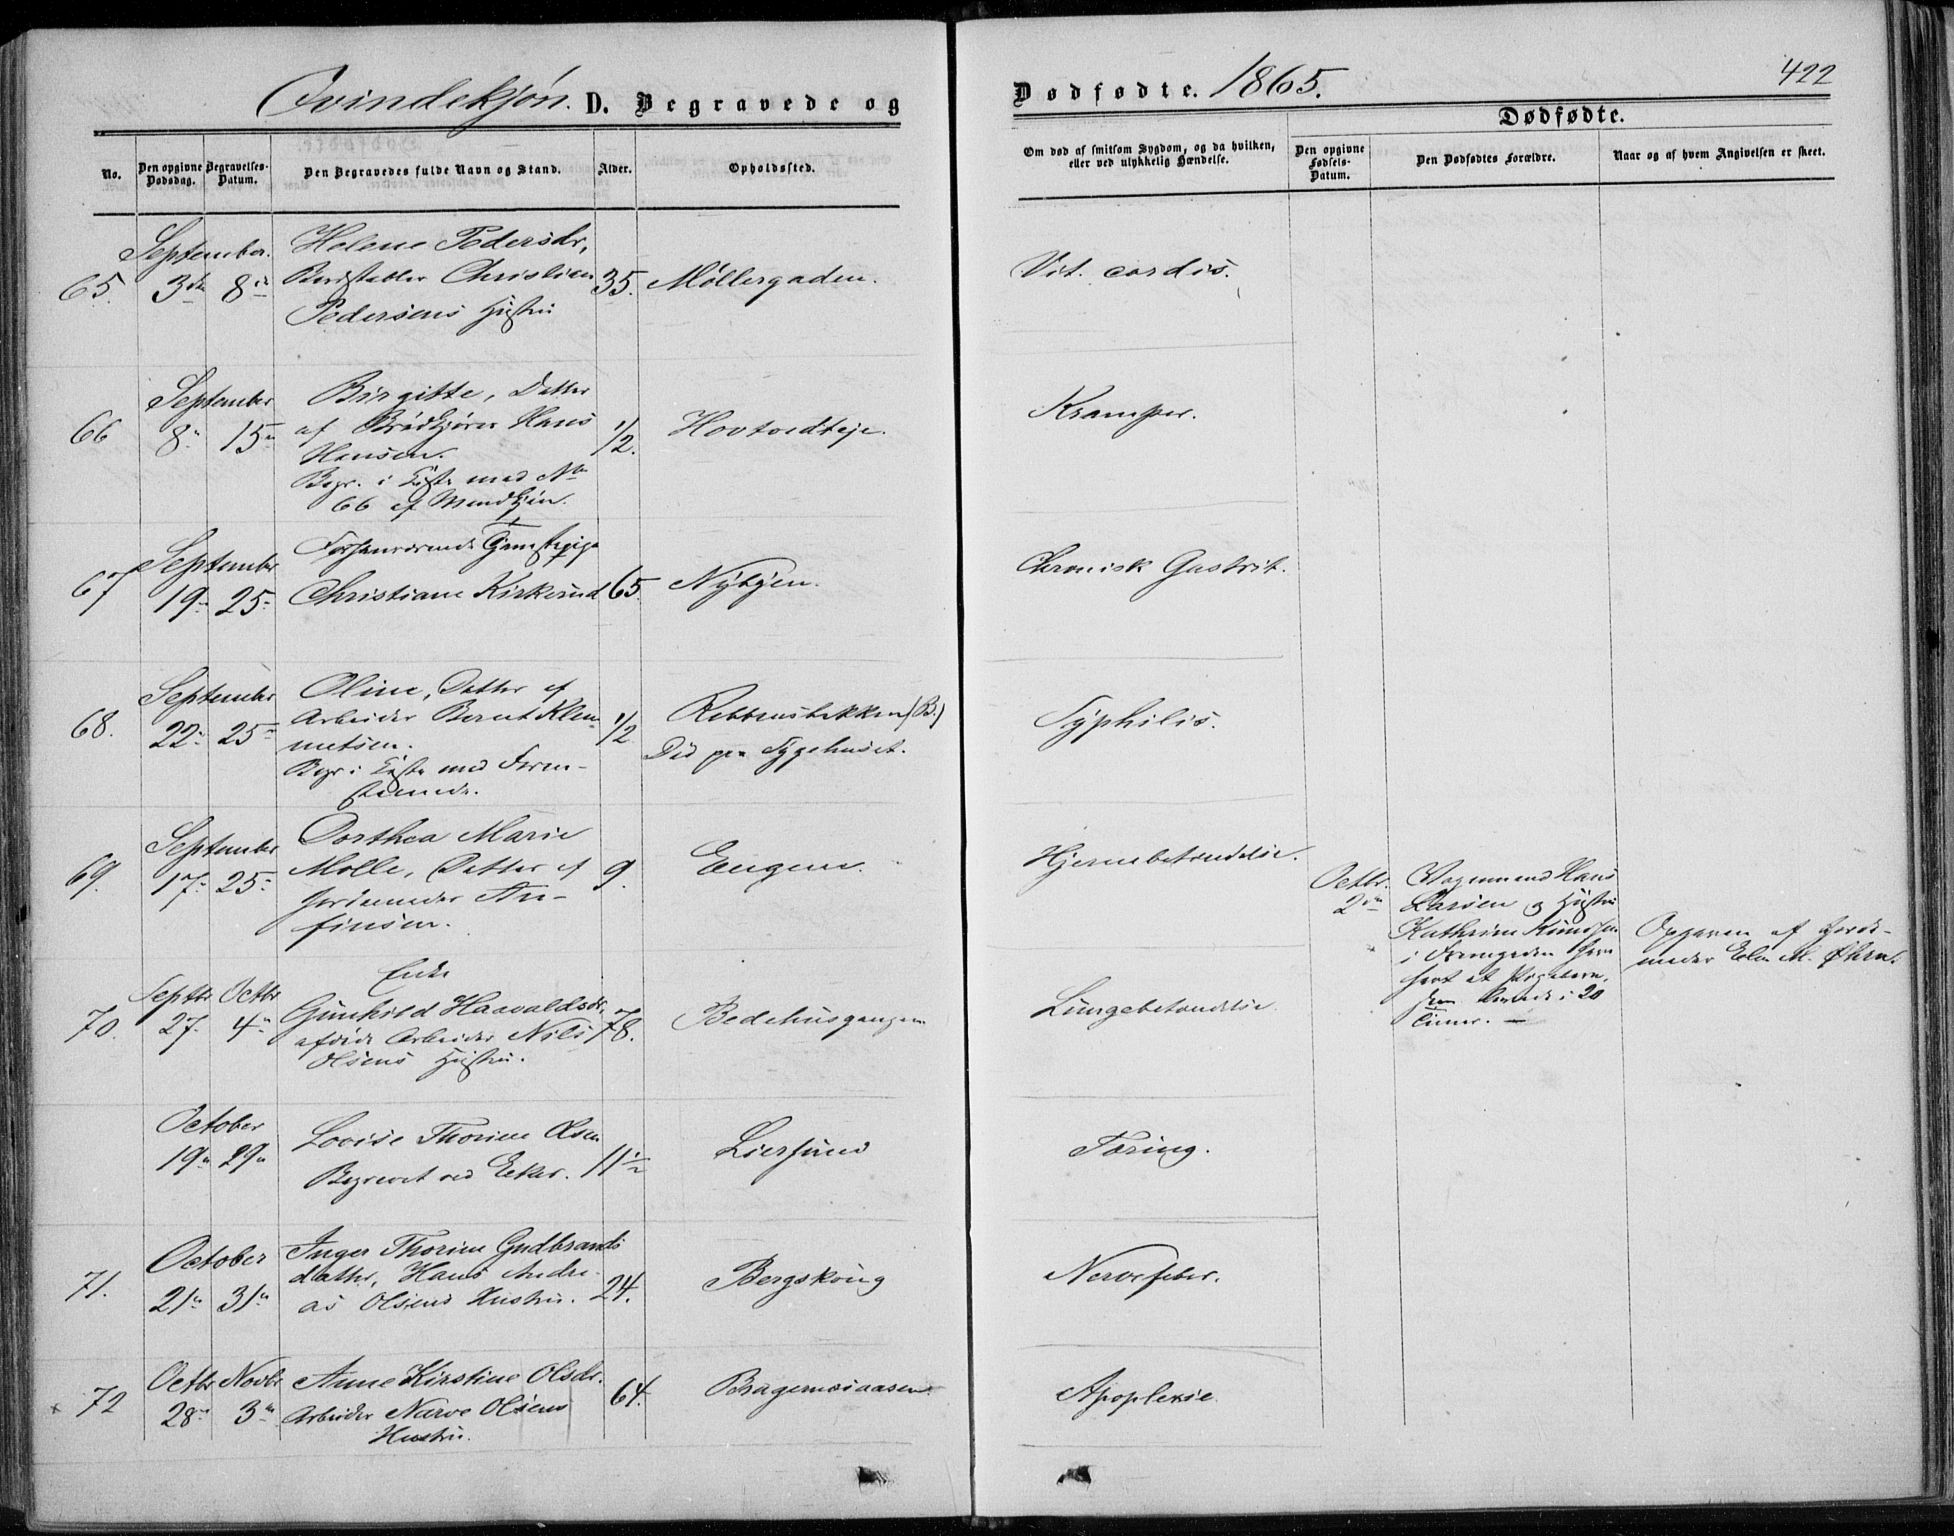 Qvindekjøn. D. Begravede og
Dødfødte. 1865.
422
No.
Den opgivne Dødsdag.
Begravelses-Datum.
Den Begravedes fulde Navn og Stand.
Alder.
Opholdssted.
Om død af smitsom Sygdom, og da hvilken,
eller ved ulykkelig Hændelse.
Dødfødte.
Den opgivne Fødsels-Datum.
Den Dødfødtes Forældre.
Naar og af hvem Angivelsen er skeet.
September. Helene Pedersdr,
65. 3die 8de Christian 35. Møllergaden. Vit. cordis.
Pedersens Hustru
September Birgitte, Datter
66 8de 15de af Hans 1/2. Krampe.
Hansen.
Begr. i Kiste med No
66 af Mandkjøn.
September Forhenværende Tjenestepige
67 19de 25de Christiane Kirkerud 65. Nybyen. Chronisk Gastrit.
September Oline, Datter af
68. 22de 25de Arbeider Bernt Klem- 1/2 (B.) Syphilis.
metsen. Død paa Sygehuset.
Begr. i Kiste med Foren-
staaende.
September Dorthea Marie
69. 17de 25de Molle, Datter af 9. Engene. Hjernebetændelse.
Jordmoder An-
finsen.
Octbr. 2den
Hans
Larsen og Hustru
Kathrine
i
født
20
Timer.
Opgaven af Jord-
moder M.
Enke
Septbr Octbr Gunhild Haavaldsdr.
70. 27de 4de afdøde Arbeider Nils 78. Bedehusgangen Lungebetændelse
Olsens Hustru.
October Lovise Thorine Olsen
19de 29de Begravet ved Eker. 11 1/2 Liersund Tæring.
October Inger Thorine Gudbrands
71. 21de 31de datter, Hans Andre- 24. Bergskoug Nervefeber.
as Olsens Hustru.
Octbr Novbr Anne Kirstine Olsdr.
72 28de 3die Arbeider Narve Olsens 64. Bragernesaasen Apoplexie.
Hustru.